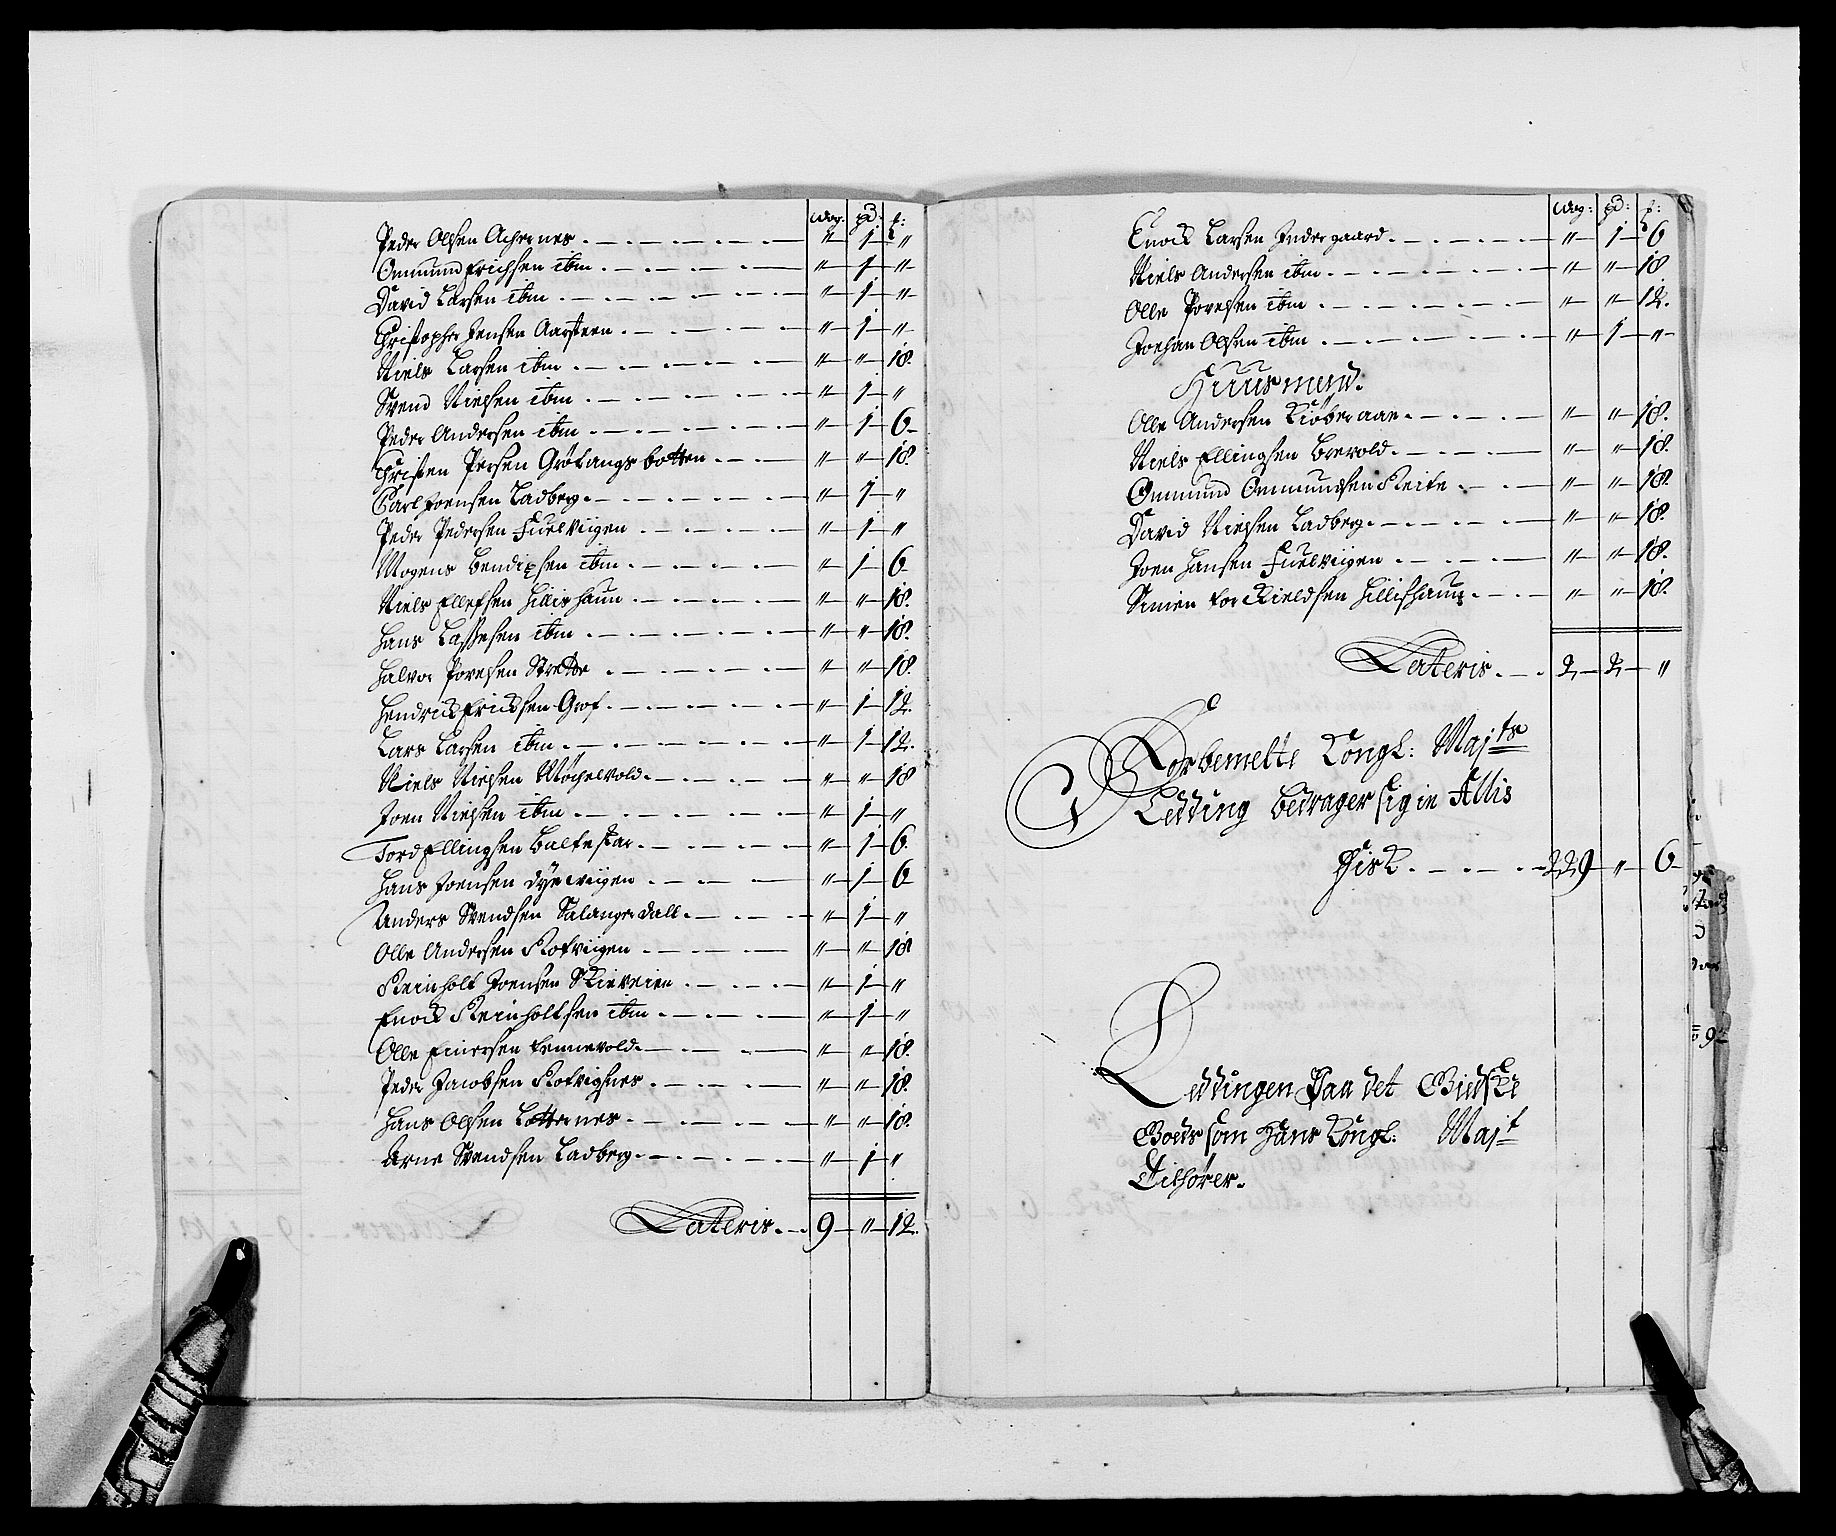 Wog: pd: f:
Peder Olsen Achernes " 1 "
Ommund Erichsen ibm " 1 "
David Larsen ibm " 1 "
Christopher Jensen Aarsteen " 1 "
Niels Larsen ibm " " 18
Svend Nielsen ibm " 1 "
Peder Andersen ibm " 1 6
Christen Persen Gröfangsbotten " " 18
Carl Joensen Ladberg " 1 "
Peder Pedersen Fuelviigen " 1 "
Mogens Bendixsen ibm " 1 6
Niels Ellefsen Hillishaun " " 18
Hans Lassesen ibm " " 18
Halvor Povelsen Strette " " 18
Hendrick Ericksen Grof " 1 12
Lars Larsen ibm " 1 12
Niels Nielsen Möchelvold " " 18
Joen Nielsen ibm " 1 "
Tord Ellingsen Baltestar " 1 6
Hans Joensen Dyrwiigen " 1 6
Anders Svendsen Salangsdall " 1 "
Olle Andersen Rotviigen " " 18
Reinholt Joensen Skieveien " 1 "
Enock Reinholtsen ibm " 1 "
Olle Einersen Tennevold " " 18
Peder Jacobsen Rotvignes " " 18
Hans Olsen Lotternes " " 18
Arne Svendsen Ladberg " 1 "
Lateris 9 " 12
Wog: pd: f:
Enock Larsen Indergaard " 1 6
Niels Andersen ibm " " 18
Olle Povelsen ibm " " 12
Joehan Olsen ibm " 1 "
Huusmend.
Olle Andersen Kiöberaae " " 18
Niels Ellingsen Brevold " " 18
Ommund Ommundsen " " 18
David Nielsen Ladberg " " 18
Joen Hansen Fuelviigen " " 18
Simen Torckieldsen Hillishaun " " 18
Lateris 2 2 "
Forbemelte Kongl: Majts
Ledding bedrager sig in Allis
Fisk 229 " 6
Leddingen Paa det Giedske
Goeds som Hans Kongl: Majt
Tilhörer.